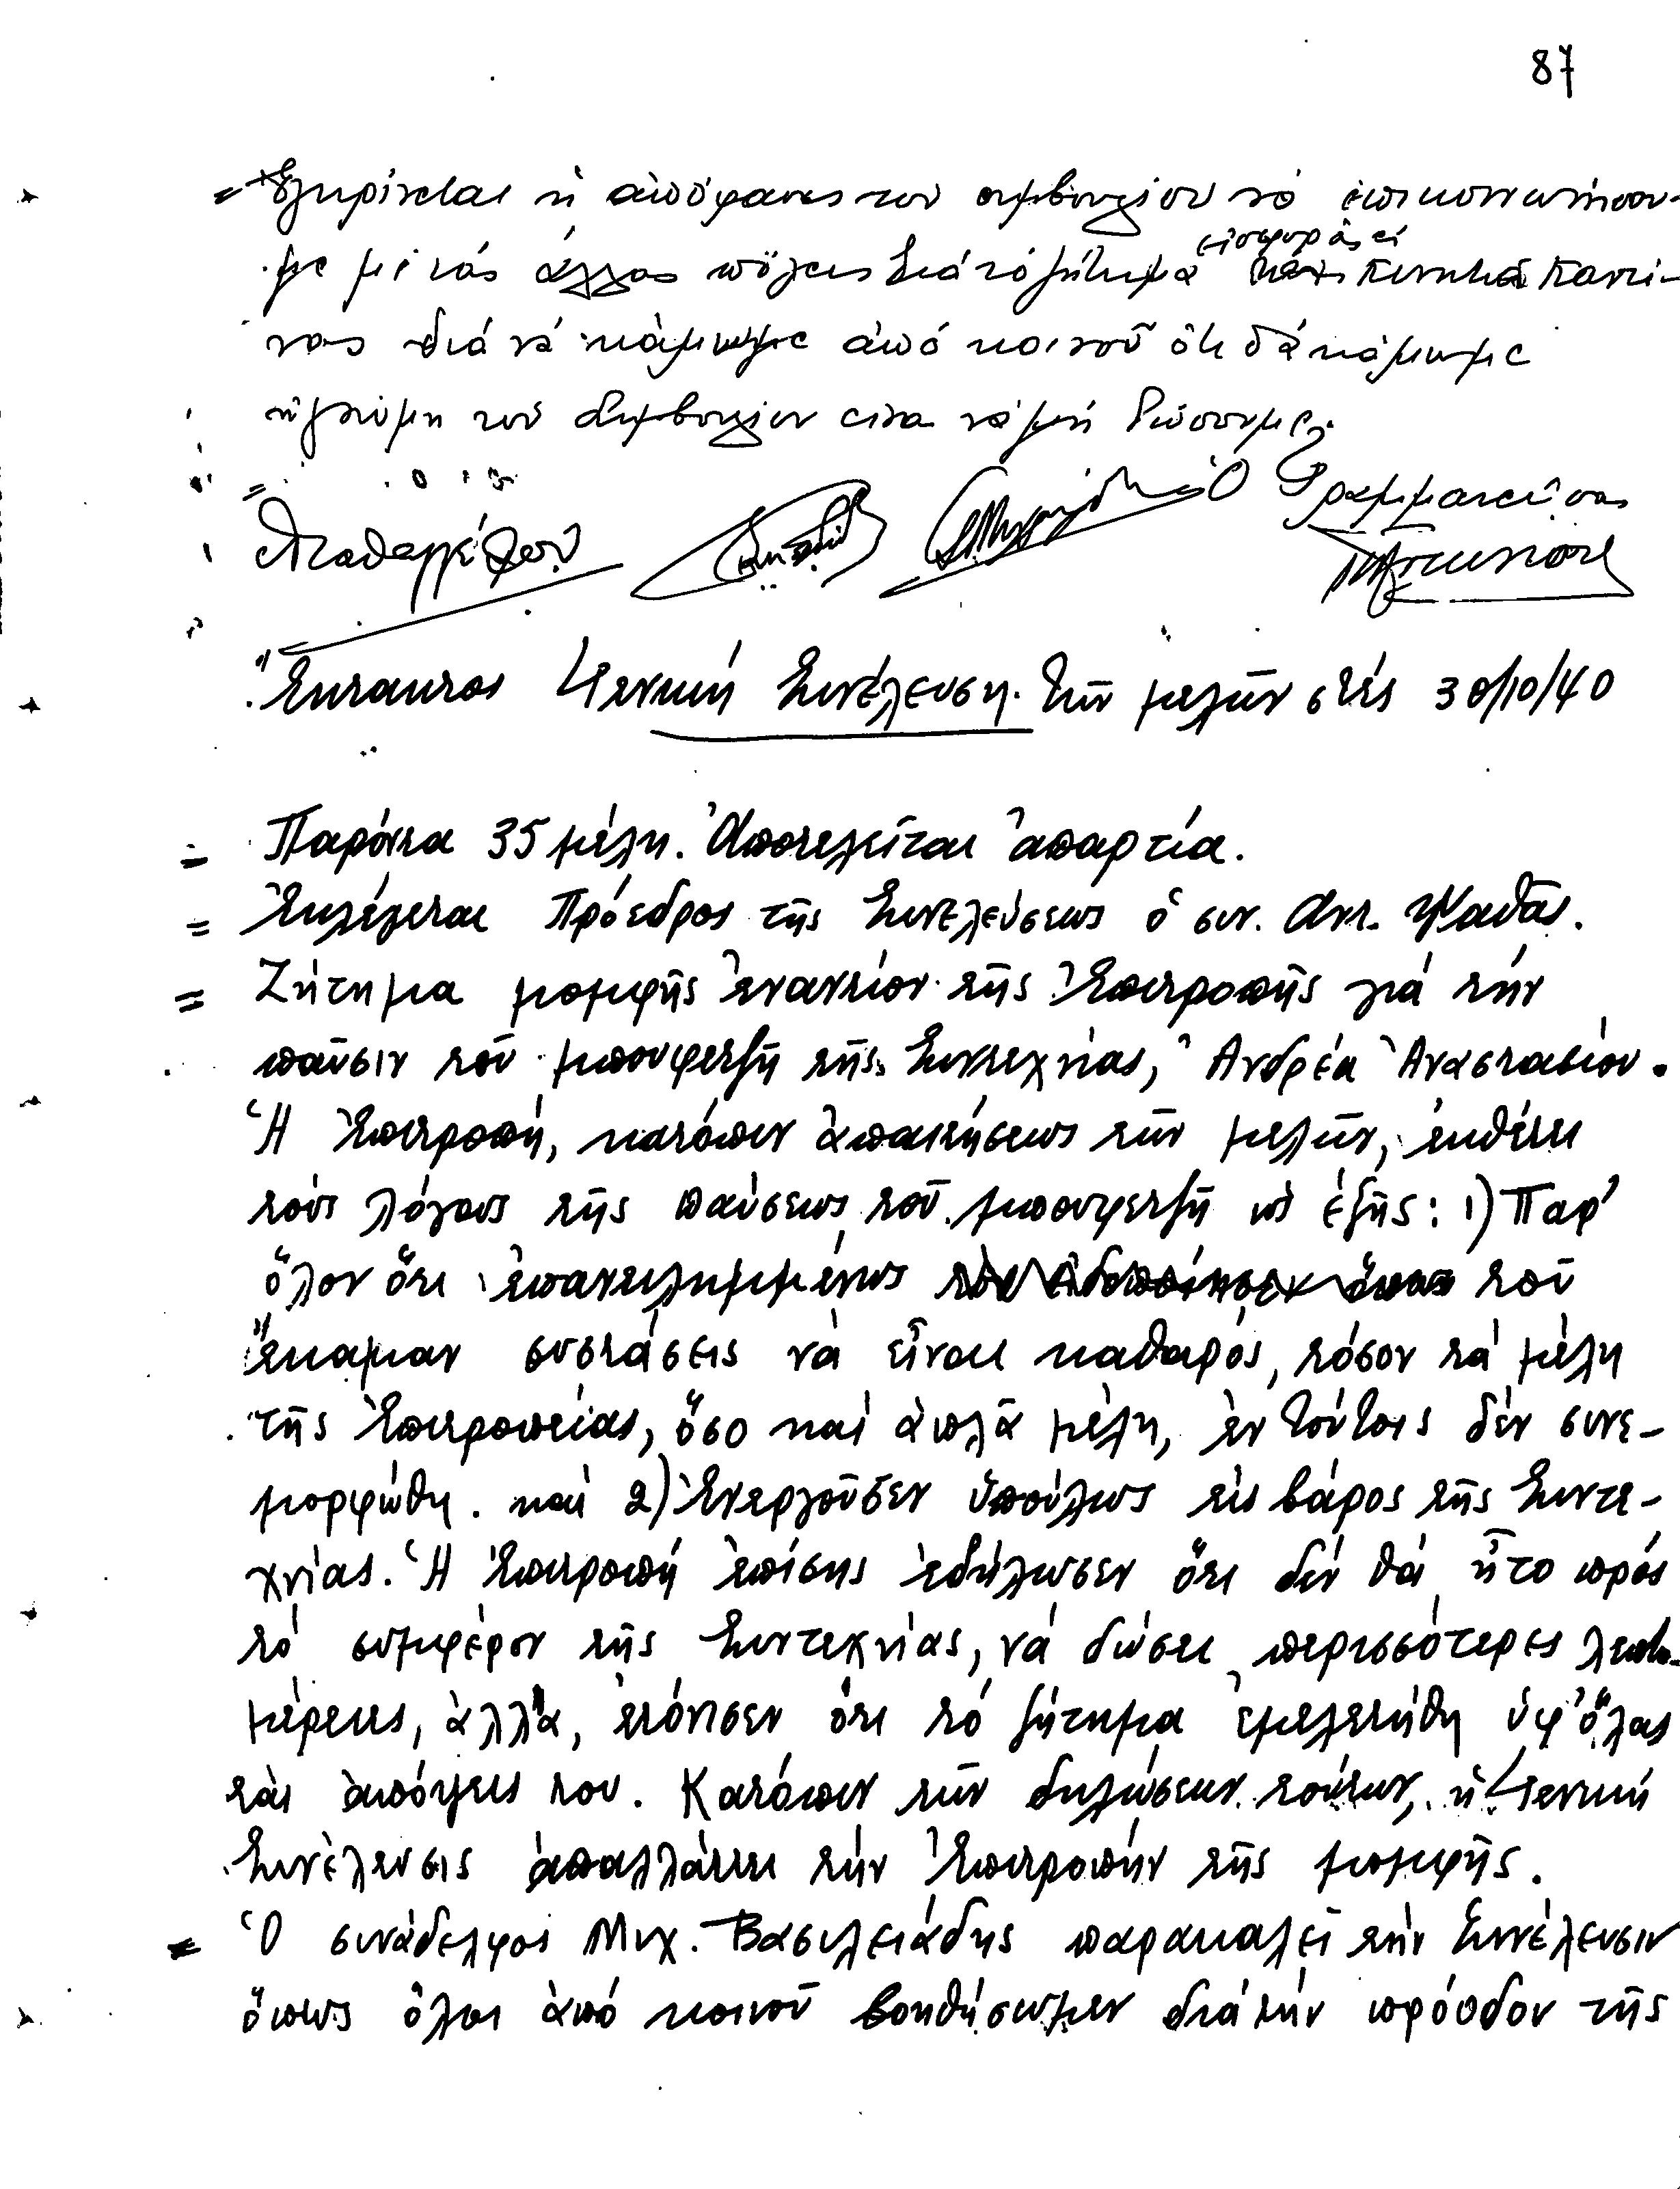 87
= Ἐγκρίνεται ἡ ἀπόφασις τοῦ συμβουλίου νά ἐπικοινωνήσου-
με μέ τάς ἄλλας πόλεις διά τό ζήτημα εἰσφορᾶς
διά νά κάμωμε ἀπό κοινοῦ ὅτι θά κάμωμε
ἡ γνώμη τοῦ Συμβουλίου εἶναι νά μή δώσουμε
Ὁ Γραμματεύσας
Ἔκτακτος Γενική Συνέλευση τῶν μελῶν στές 30/10/40
= Παρόντα 35 μέλη. Ἀποτελεῖται ἀπαρτία.
= Ἐκλέγεται Πρόεδρος τῆς Συνελεύσεως ὁ συν. Αντ. Ψαθᾶς.
= Ζήτημα μομφῆς ἐναντίον τῆς Ἐπιτροπῆς γιά τήν
παῦσιν τοῦ μπουφετζῆ τῆς Συντεχνίας, Ἀνδρέα Ἀναστασίου.
Ἡ Ἐπιτροπή, κατόπιν ἀπαιτήσεως τῶν μελῶν, ἐκθέτει
τούς λόγους τῆς παύσεως τοῦ μπουφετζῆ ὡς ἑξῆς: 1) Παρ'
ὅλον ὅτι ἐπανειλημμένως τοῦ
ἔκαμαν συστάσεις νά εἶναι καθαρός, τόσον τά μέλη
τῆς Ἐπιτροπείας, ὅσο καί ἁπλᾶ μέλη, ἐν τούτοις δέν συνε-
μορφώθη. καί 2) Ἐνεργοῦσεν ὑπούλως εἰς βάρος τῆς Συντε-
χνίας. Ἡ Ἐπιτροπή ἐπίσης ἐδήλωσεν ὅτι δέν θά ἦτο πρός
τό συμφέρον τῆς Συντεχνίας, νά δώσει περισσότερες λεπτο-
μέρειες, ἀλλά, ἐτόνισεν ὅτι τό ζήτημα ἐμελετήθη ὑφ' ὅλας
τάς ἀπόψεις του. Κατόπιν τῶν δηλώσεων τούτων, ἡ Γενική
Συνέλευσις ἀπαλλάττει τήν Ἐπιτροπήν τῆς μομφῆς.
= Ὁ συνάδελφος Μιχ. Βασιλειάδης παρακαλεῖ τήν Συνέλευσιν
ὅπως ὅλοι ἀπό κοινοῦ βοηθήσωμεν διά τήν πρόοδον τῆς